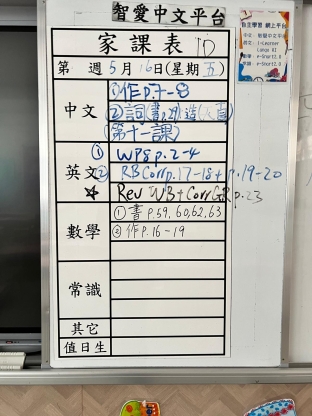 智愛中文平台
家課表 1D
第 週 5月16日(星期五)
中文
①作p.7-8
②詞(書p.29)造(八百)
(第十一課)
英文
① WP8 p.2-4
② RB Corr p.17-18 + p.19-20
☆ Rev WB + Corr GR p.23
數學
① 書p.59,60,62,63
② 作p.16-19
常識
其它
值日生
自主學習 網上平台